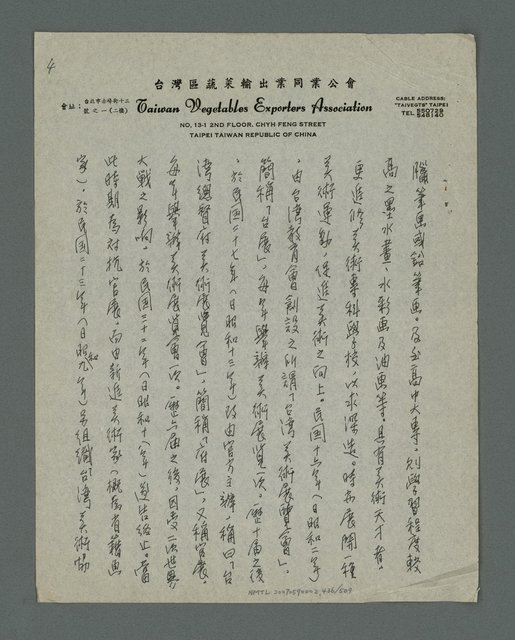 4
台灣區蔬菜輸出業同業公會
會址：台北市赤峰街十三號之一(二樓)
Taiwan Vegetables Exporters Association
NO. 13-1 2ND FLOOR, CHYH FENG STREET
TAIPEI TAIWAN REPUBLIC OF CHINA
CABLE ADDRESS:
"TAIVEGTS" TAIPEI
TEL.
臘筆畫或鉛筆畫。及至高中大專。則學習程度較
高之墨水畫、水彩畫及油畫等。具有美術天才者。
更進修美術專科學校。以求深造。時亦展開種
美術運動。促進美術之向上。民国十六年(日昭和二年
。由台湾教育會創設之所謂「台湾美術展覽會」。
簡稱「台展」。每年舉辦美術展覽一次。歷十届之後
。於民国二十七年(日昭和十三年)改由官方主辦。稱曰「台
湾總督府美術展覽會」。簡稱「府展」。又稱官展。
每年舉辦美術展覽會一次。歷六届之後。因受二次世界
大戰之影响。於民国三十二年(日昭和十八年)遂告終止。當
此時期為对抗官展。而由新進美術家(概為省籍画
家)。於民国二十三年(日昭和九年)另組織「台湾美術協
NMTL 20090590002 436/509